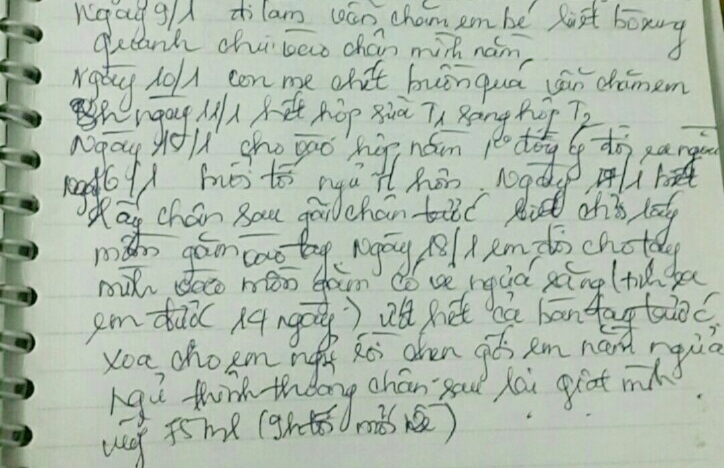 Ngày 9/1 đi làm vẫn chăm em bé biết bò xung
quanh chui vào chăn mình nằm
Ngày 10/1 con mẹ chết buồn quá vẫn chăm em
ngày 11/1 hết hộp sữa T1 sang hộp T2
Ngày 15/1 cho vào hộp nằm đòi ra ngoài
Ngày 16/1 buổi tối ngủ ít hơn. Ngày 17/1 biết
lấy chân sau gãi chân trước biết chỗ lấy
mồm gặm vào tay. Ngày 18/1 em đòi cho tay
mình vào mồm gặm có vẻ ngứa răng (tính ra
em được 14 ngày) ướt hết cả bàn tay trước
xoa cho em ngủ rồi chèn gối em nằm ngửa
ngủ thỉnh thoảng chân sau lại giật mình
75ml (9h tối mới)